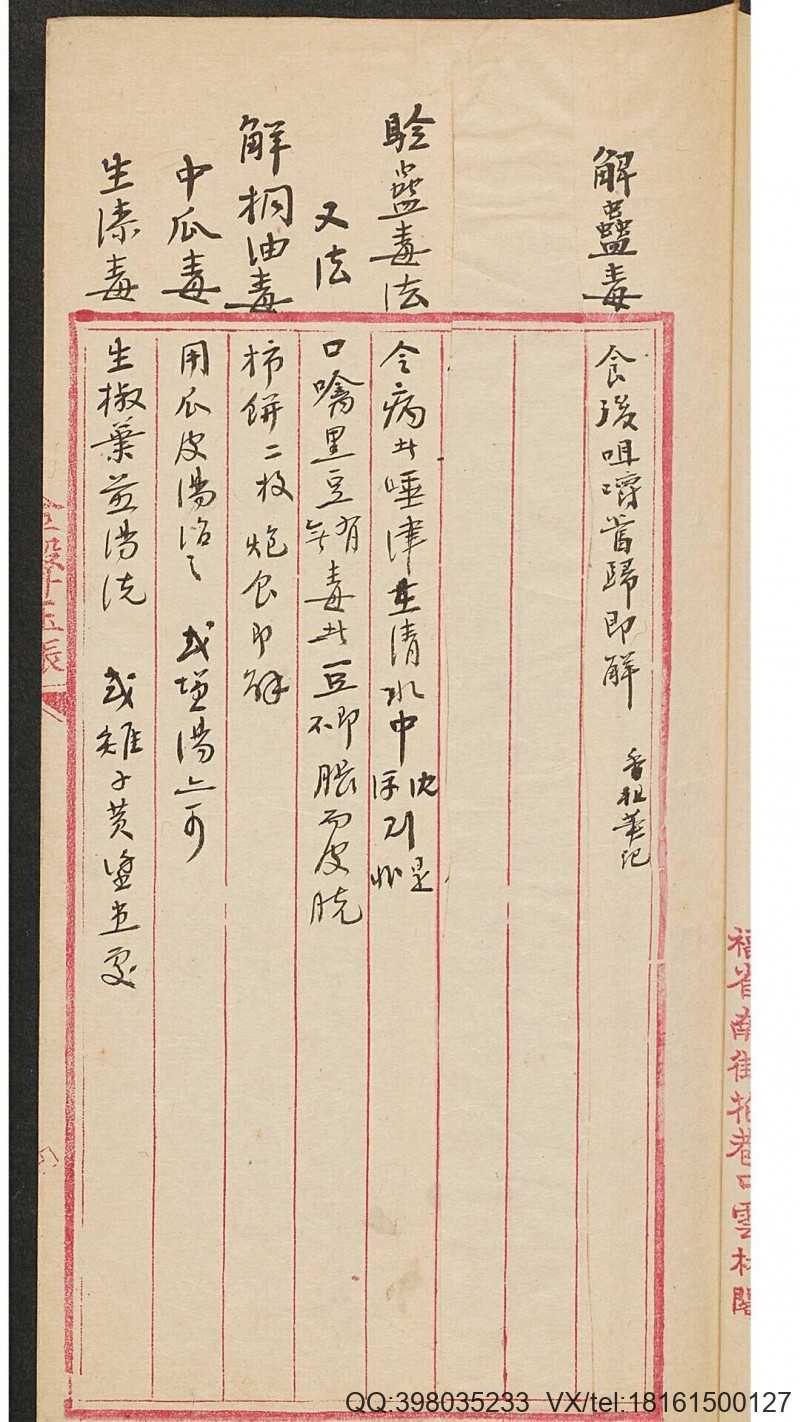 解蠱毒 食後咀嚼當歸即解 香祖筆記
驗蠱毒法 令病者唾津在清水中沈則是浮則非
又法 口噙黑豆有毒者豆即脹而皮脫無毒者不
解桐油毒 柿餅二枚炮食即解
中瓜毒 用瓜皮湯治之 或塩湯亦可
生漆毒 生椒葉煎湯洗 或雞子黃塗患處
福省南街抱巷口雲林閣
QQ:398035233 VX/tel:18161500127